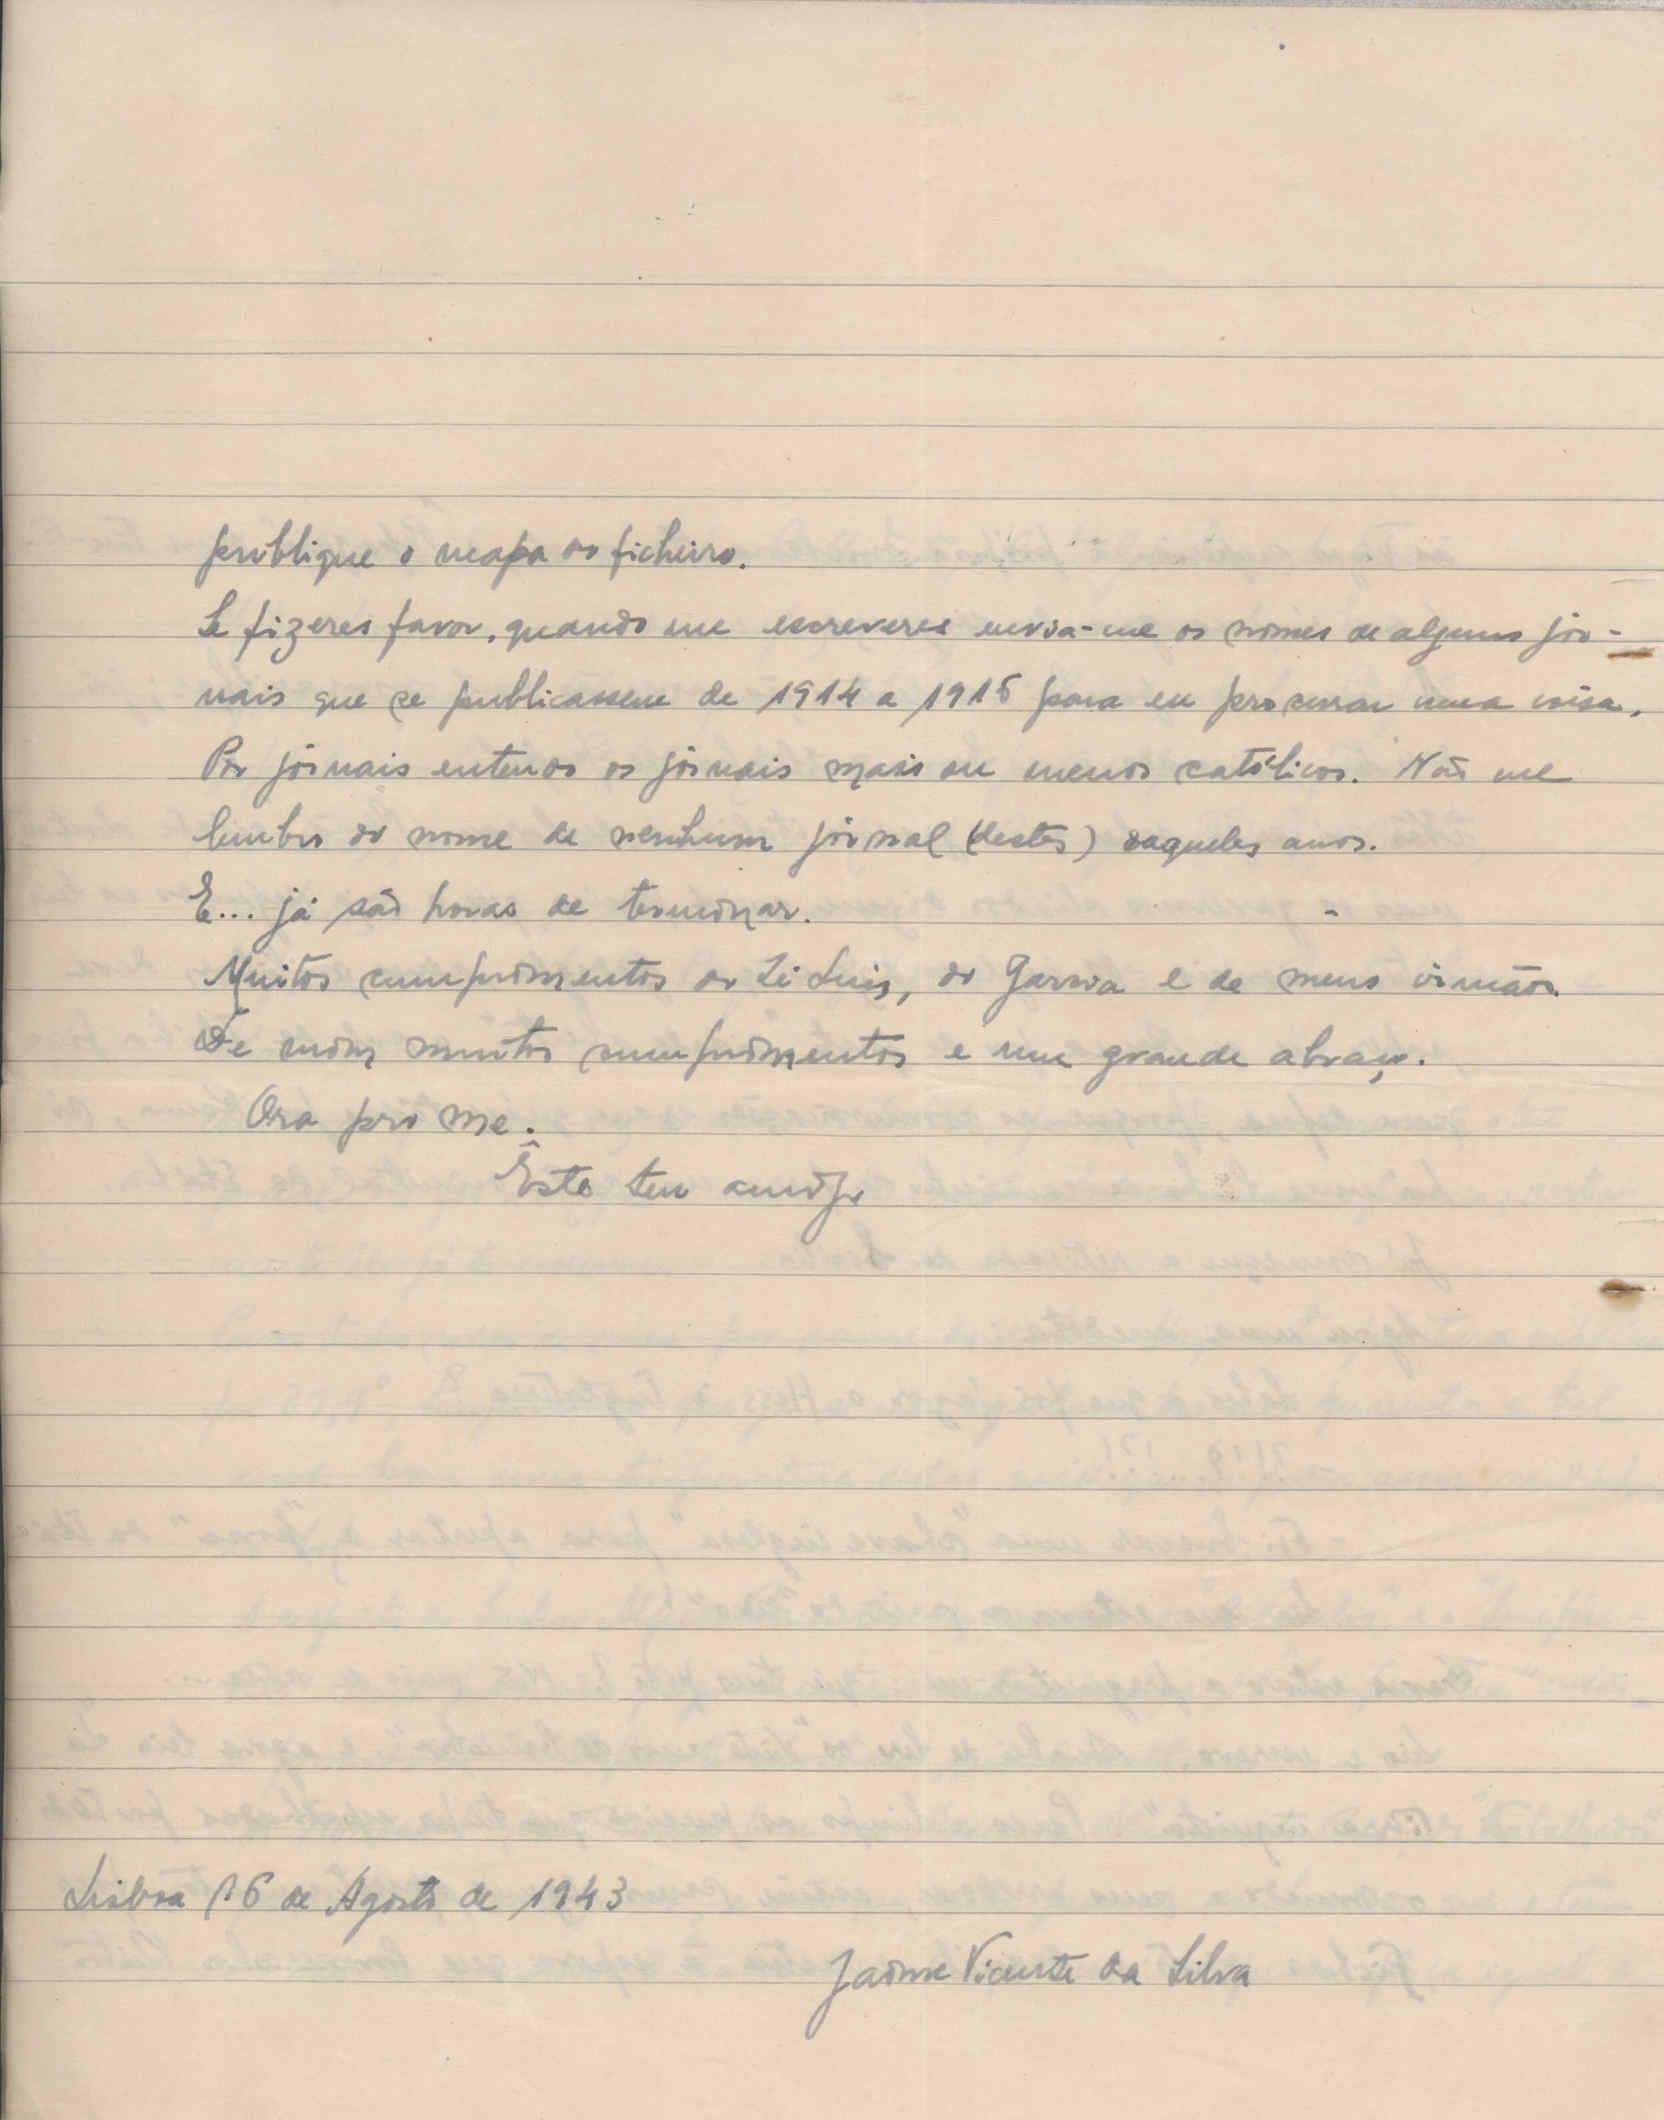 publique o mapa do ficheiro.
Se fizeres favor, quando me escreveres envia-me os nomes de alguns jor-
nais que se publicassem de 1914 a 1916 para eu procurar uma coisa.
Por jornais entendo os jornais mais ou menos católicos. Não me
lembro do nome de nenhum jornal (destes) daqueles anos.
E... já são horas de terminar.
Muitos cumprimentos do Zé Luis, do Garcia e de meus irmãos.
De mim muitos cumprimentos e um grande abraço.
Ora pro me.
Êste teu amigo
Lisboa 16 de Agosto de 1943
Jaime Vicente da Silva